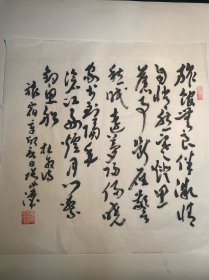 旅館無良伴凝情
自悄然寒燈思
舊事斷雁警
愁眠遠夢歸侵曉
家書到隔年
滄江好煙月門繫
釣魚船 杜牧詩
旅宿辛卯秋日